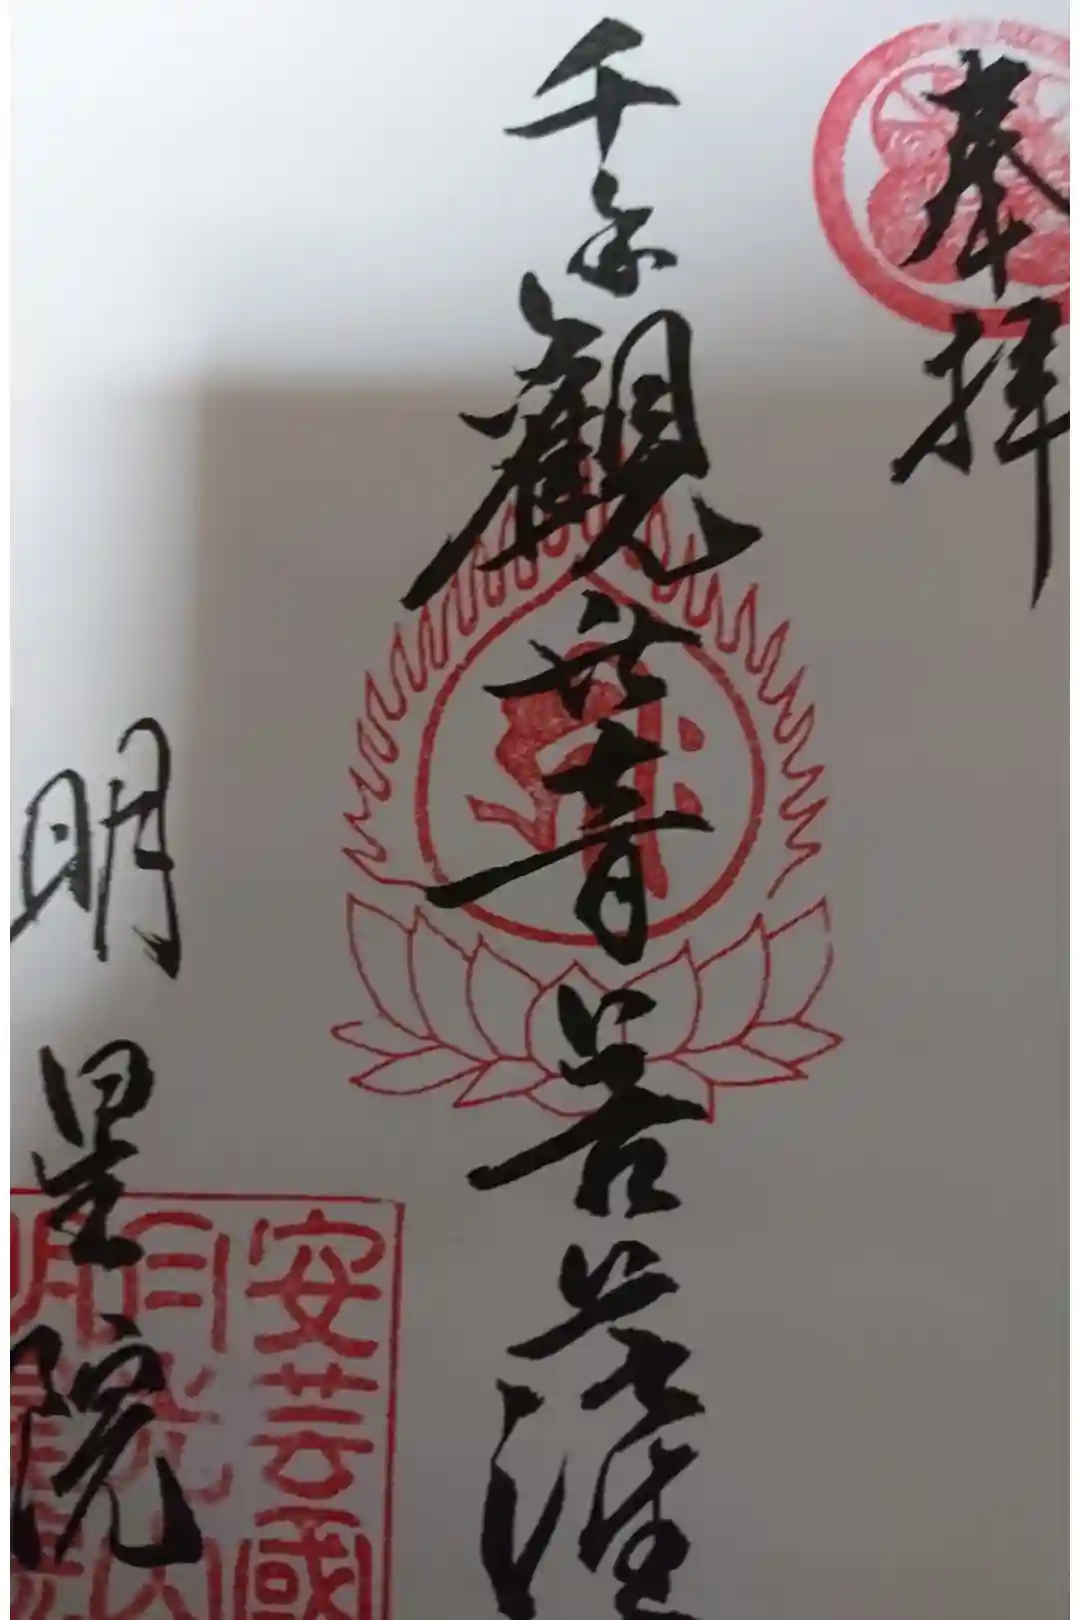 奉拝
千手観世音菩薩
明星院
安芸國